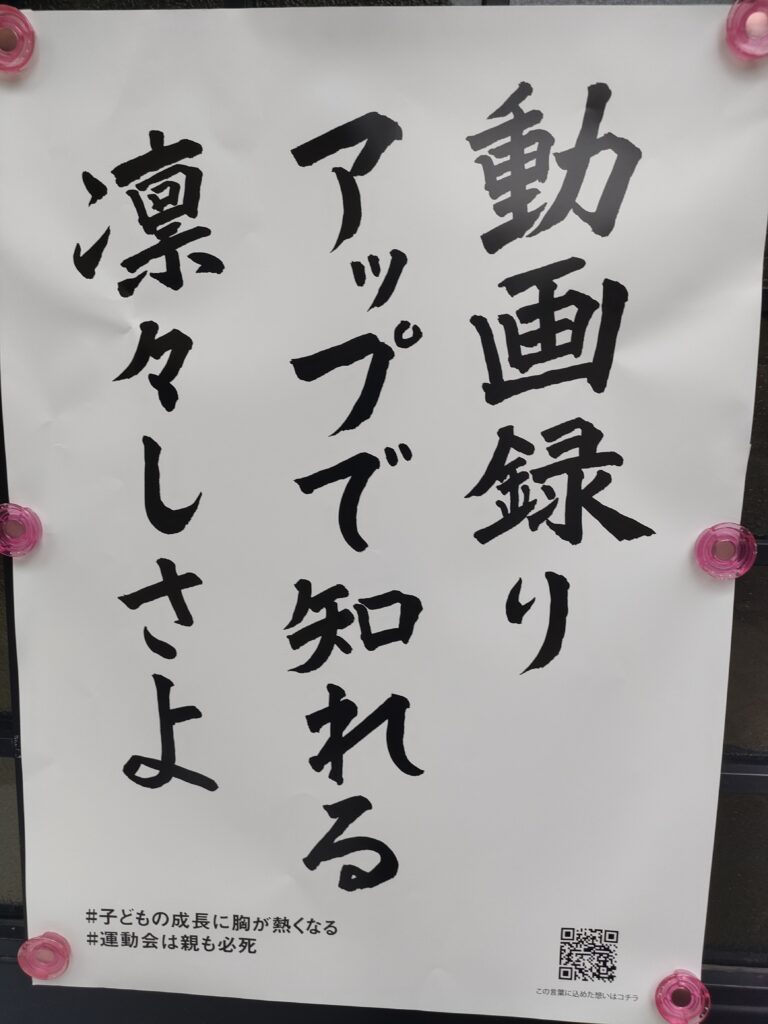 動画録り
アップで知れる
凛々しさよ
#子どもの成長に胸が熱くなる
#運動会は親も必死
この言葉に込めた想いはコチラ